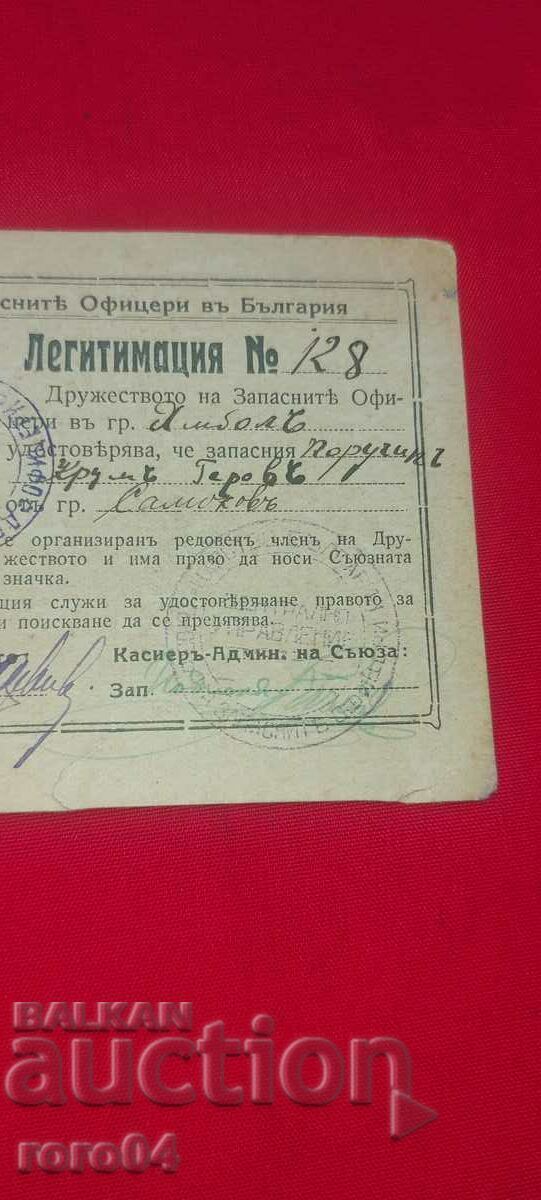 снитѣ Офицери въ България
Легитимация № 128
Дружеството на Запаснитѣ Офи-
цери въ гр. Ямболъ
удостовѣрява, че запасния Поручикъ
Крумъ Геровъ
отъ гр. Самоковъ
е организиранъ редовенъ членъ на Дру-
жеството и има право да носи Съюзната
значка.
ция служи за удостовѣряване правото за
и поискване да се предявява.
Касиеръ-Админ. на Съюза:
Зап.
УПРАВЛЕНИЕ
BALKAN
auction
roro04